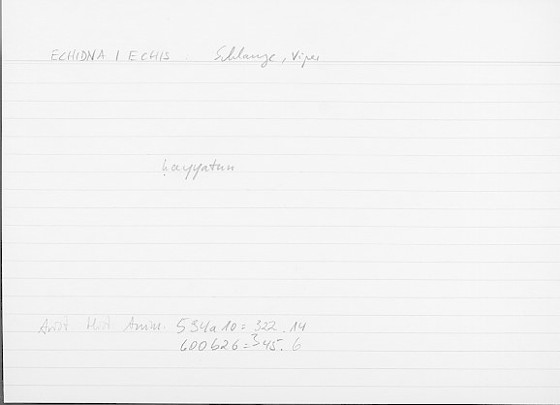 ECHIDNA / ECHIS Schlange, Viper
ḥayyatun
Arist. Hist. Anim. 594a10 = 322.14
600b26 = 345.6